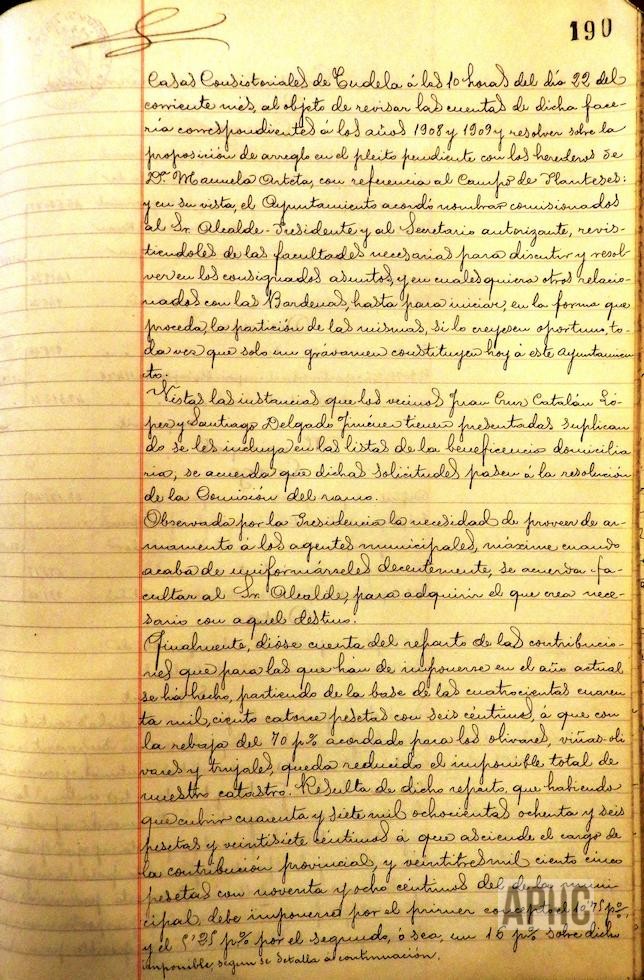 190
Casas Consistoriales de Tudela á las 10 horas del día 22 del
corriente mes, al objeto de revisar las cuentas de dicha face-
ría correspondientes á los años 1908 y 1909 y resolver sobre la
proposición de arreglo en el pleito pendiente con los herederos de
Dª. Manuela Orteta, con referencia al Campo de
y en su vista, el Ayuntamiento acordó nombrar comisionados
al Sr. Alcalde-Presidente y al Secretario autorizante, revis-
tiendoles de las facultades necesarias para discutir y resol-
ver en los consignados asuntos, y en cualesquiera otros relacio-
nados con las Bardenas, hasta para iniciar, en la forma que
proceda, la partición de las mismas, si lo creyesen oportuno, to-
da vez que solo un grávamen constituyen hoy á este Ayuntamien
to.
Vistas las instancias que los vecinos Juan Cruz Catalán Ló-
pez y Santiago Delgado Jiménez tienen presentadas suplican
do se les incluya en las listas de la beneficencia domicilia
ria, se acuerda que dichas solicitudes pasen á la resolución
de la Comisión del ramo.
Observada por la Presidencia la necesidad de proveer de ar-
mamento á los agentes municipales, máxime cuando
acaba de uniformárseles decentemente, se acuerda fa-
cultar al Sr. Alcalde, para adquirir el que crea nece-
sario con aquel destino.
Finalmente, dióse cuenta del reparto de las contribucio-
nes que para las que han de imponerse en el año actual
se há hecho, partiendo de la base de las cuatrocientas cuaren
ta mil, ciento catorce pesetas con seis céntimos, á que con
la rebaja del 70 p% acordado para los olivares, viñas-oli
vares y trujales, queda reducido el imponible total de
nuestro catastro. Resulta de dicho reparto, que habiendo
que cubrir cuarenta y siete mil ochocientas ochenta y seis
pesetas y veintisiete céntimos á que asciende el cargo de
la contribución provincial, y veintitres mil ciento cinco
pesetas con noventa y ocho céntimos del de la muni-
cipal, debe imponerse por el primer concepto el 10'75 p%,
y el 5'25 p% por el segundo, ó sea, un 16 p% sobre dicho
imponible, según se detalla á continuación.
APHC